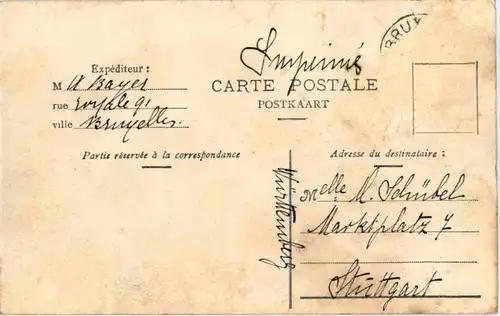 Imprimé
BRUX
Expéditeur :
M A Bayer
rue royale 91
ville Bruxelles.
CARTE POSTALE
POSTKAART
Partie réservée à la correspondance
Adresse du destinataire :
Melle M. Schübel
Marktplatz 7
Stuttgart
Württemberg